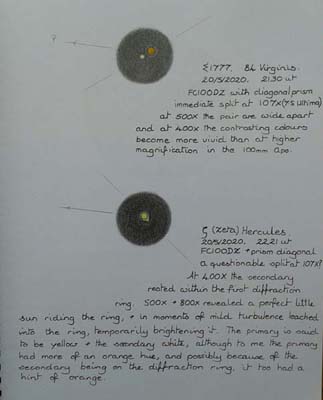 P
Σ1777. 84 Virginis.
20/5/2020. 21.30 ut
FC100DZ with diagonal prism
immediate split at 107x (7.5 Ultima)
at 500x the pair are wide apart
and at 400x the contrasting colours
become more vivid than at higher
magnification in the 100mm apo.
ζ (zeta) Hercules.
20/5/2020. 22.21 ut
FC100DZ + prism diagonal
a questionable split at 107x?
At 400x the secondary
rested within the first diffraction
ring. 500x + 800x revealed a perfect little
sun riding the ring, + in moments of mild turbulence leached
into the ring, temporarily brightening it. The primary is said
to be yellow + the secondary white, although to me the primary
had more of an orange hue, and possibly because of the
secondary being on the diffraction ring, it too had a
hint of orange.